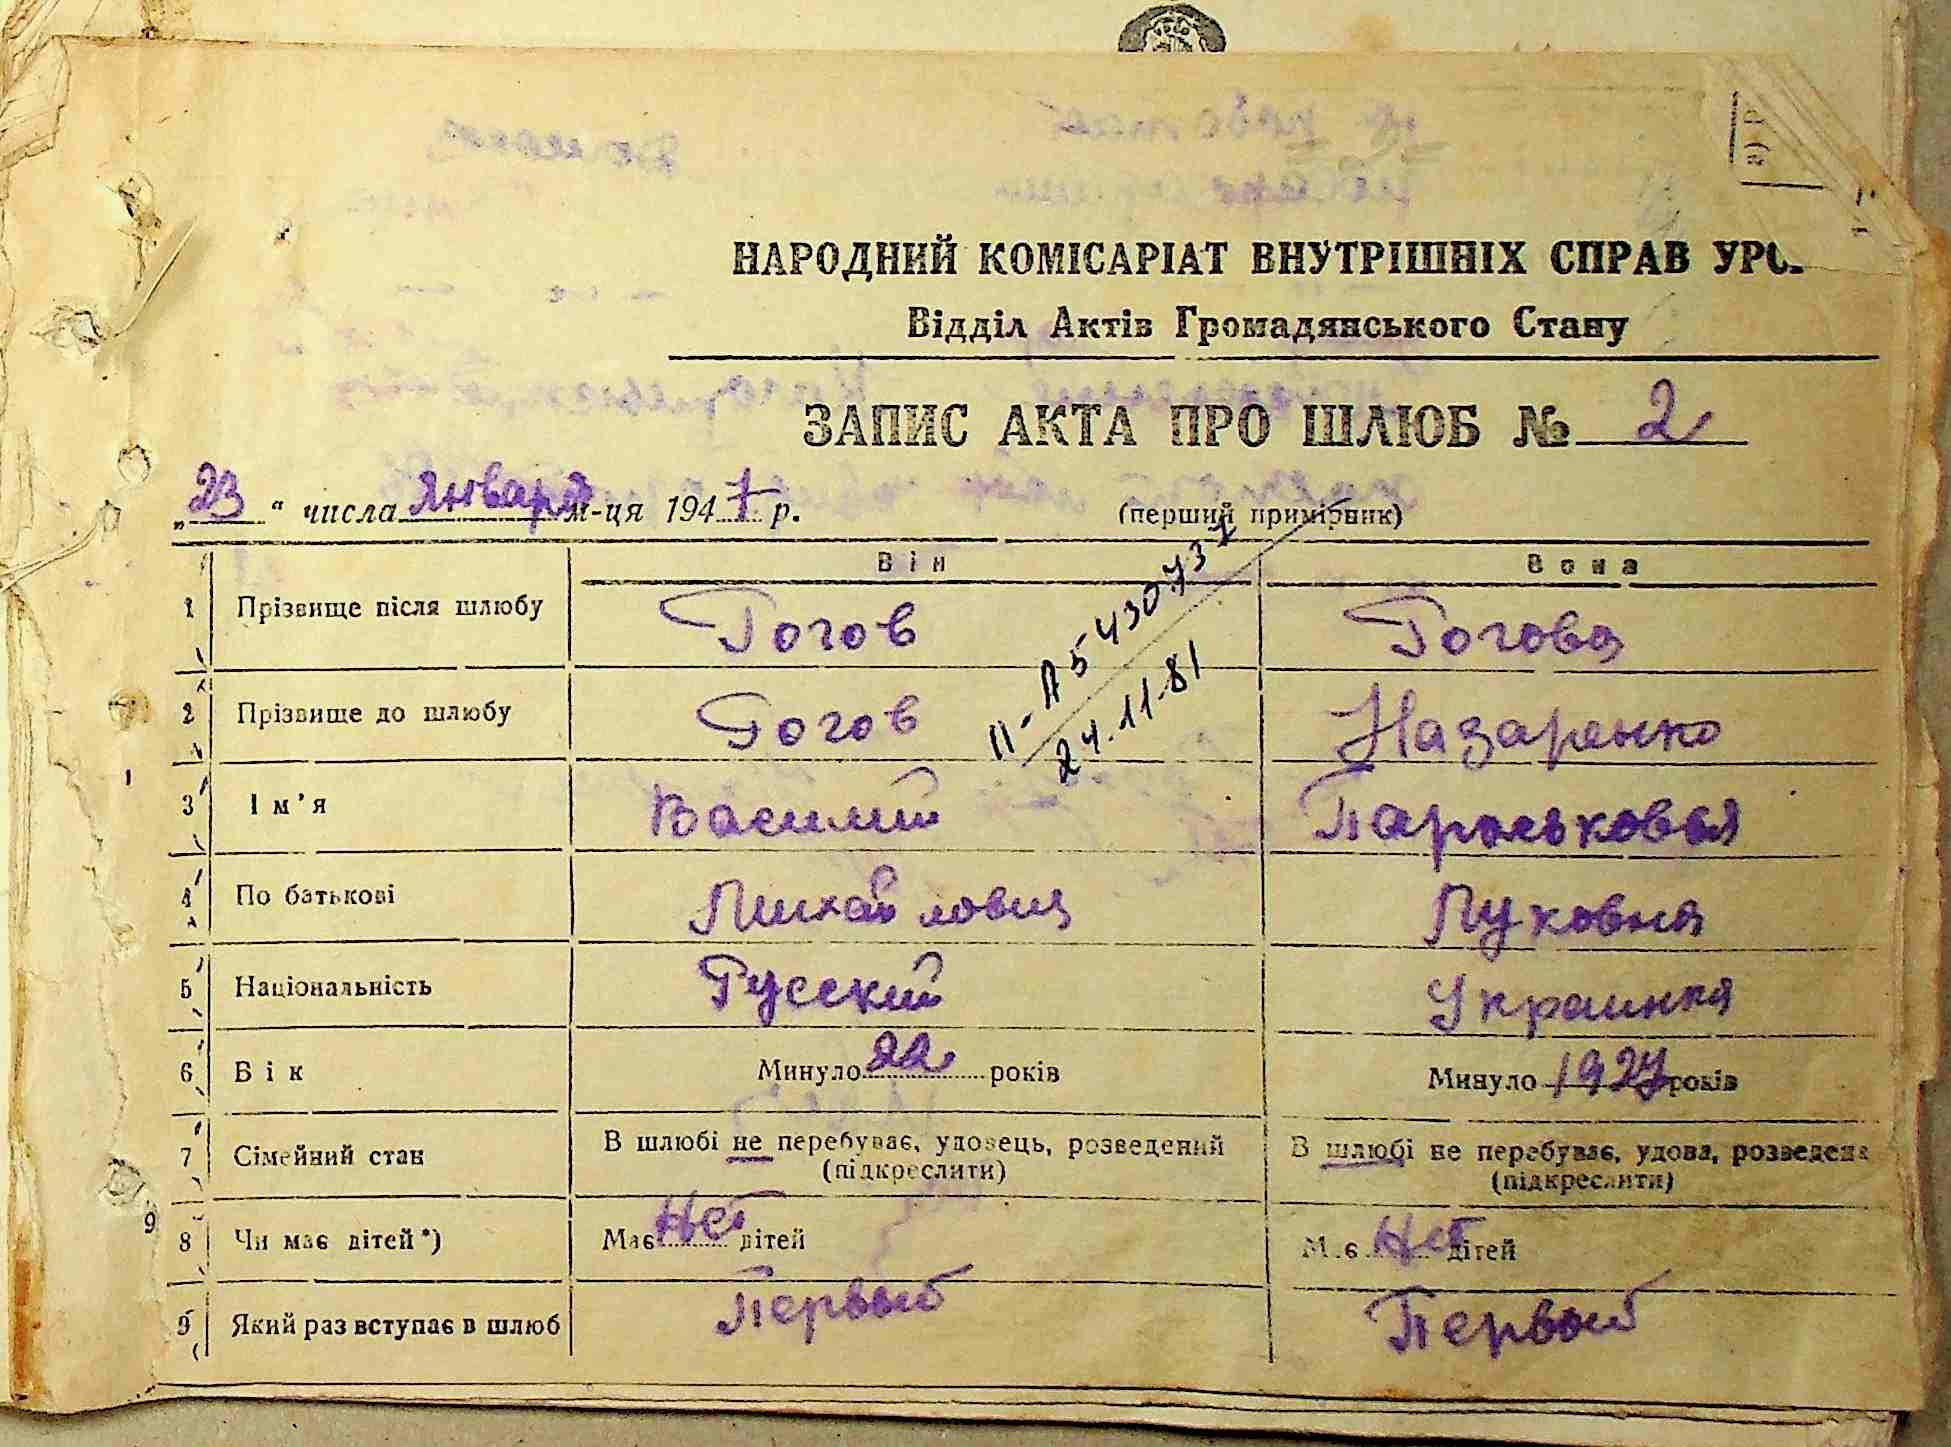 НАРОДНИЙ КОМІСАРІАТ ВНУТРІШНІХ СПРАВ УРС
Відділ Актів Громадянського Стану
ЗАПИС АКТА ПРО ШЛЮБ № 2
„23" числа Января м-ця 1947 р. (перший примірник)
Він Вона
1 Прізвище після шлюбу Гогов Гогова
2 Прізвище до шлюбу Гогов Назаренко
II-А5 430737
24-11-81
3 Ім'я Василий
4 По батькові Михайлович Луковна
5 Національність Русский Украинка
6 Вік Минуло 22 років Минуло 1927 років
7 Сімейний стан В шлюбі не перебуває, удовець, розведений (підкреслити) В шлюбі не перебуває, удова, розведена (підкреслити)
8 Чи має дітей*) Має Нет дітей Має Нет дітей
9 Який раз вступає в шлюб Первый Первый
9